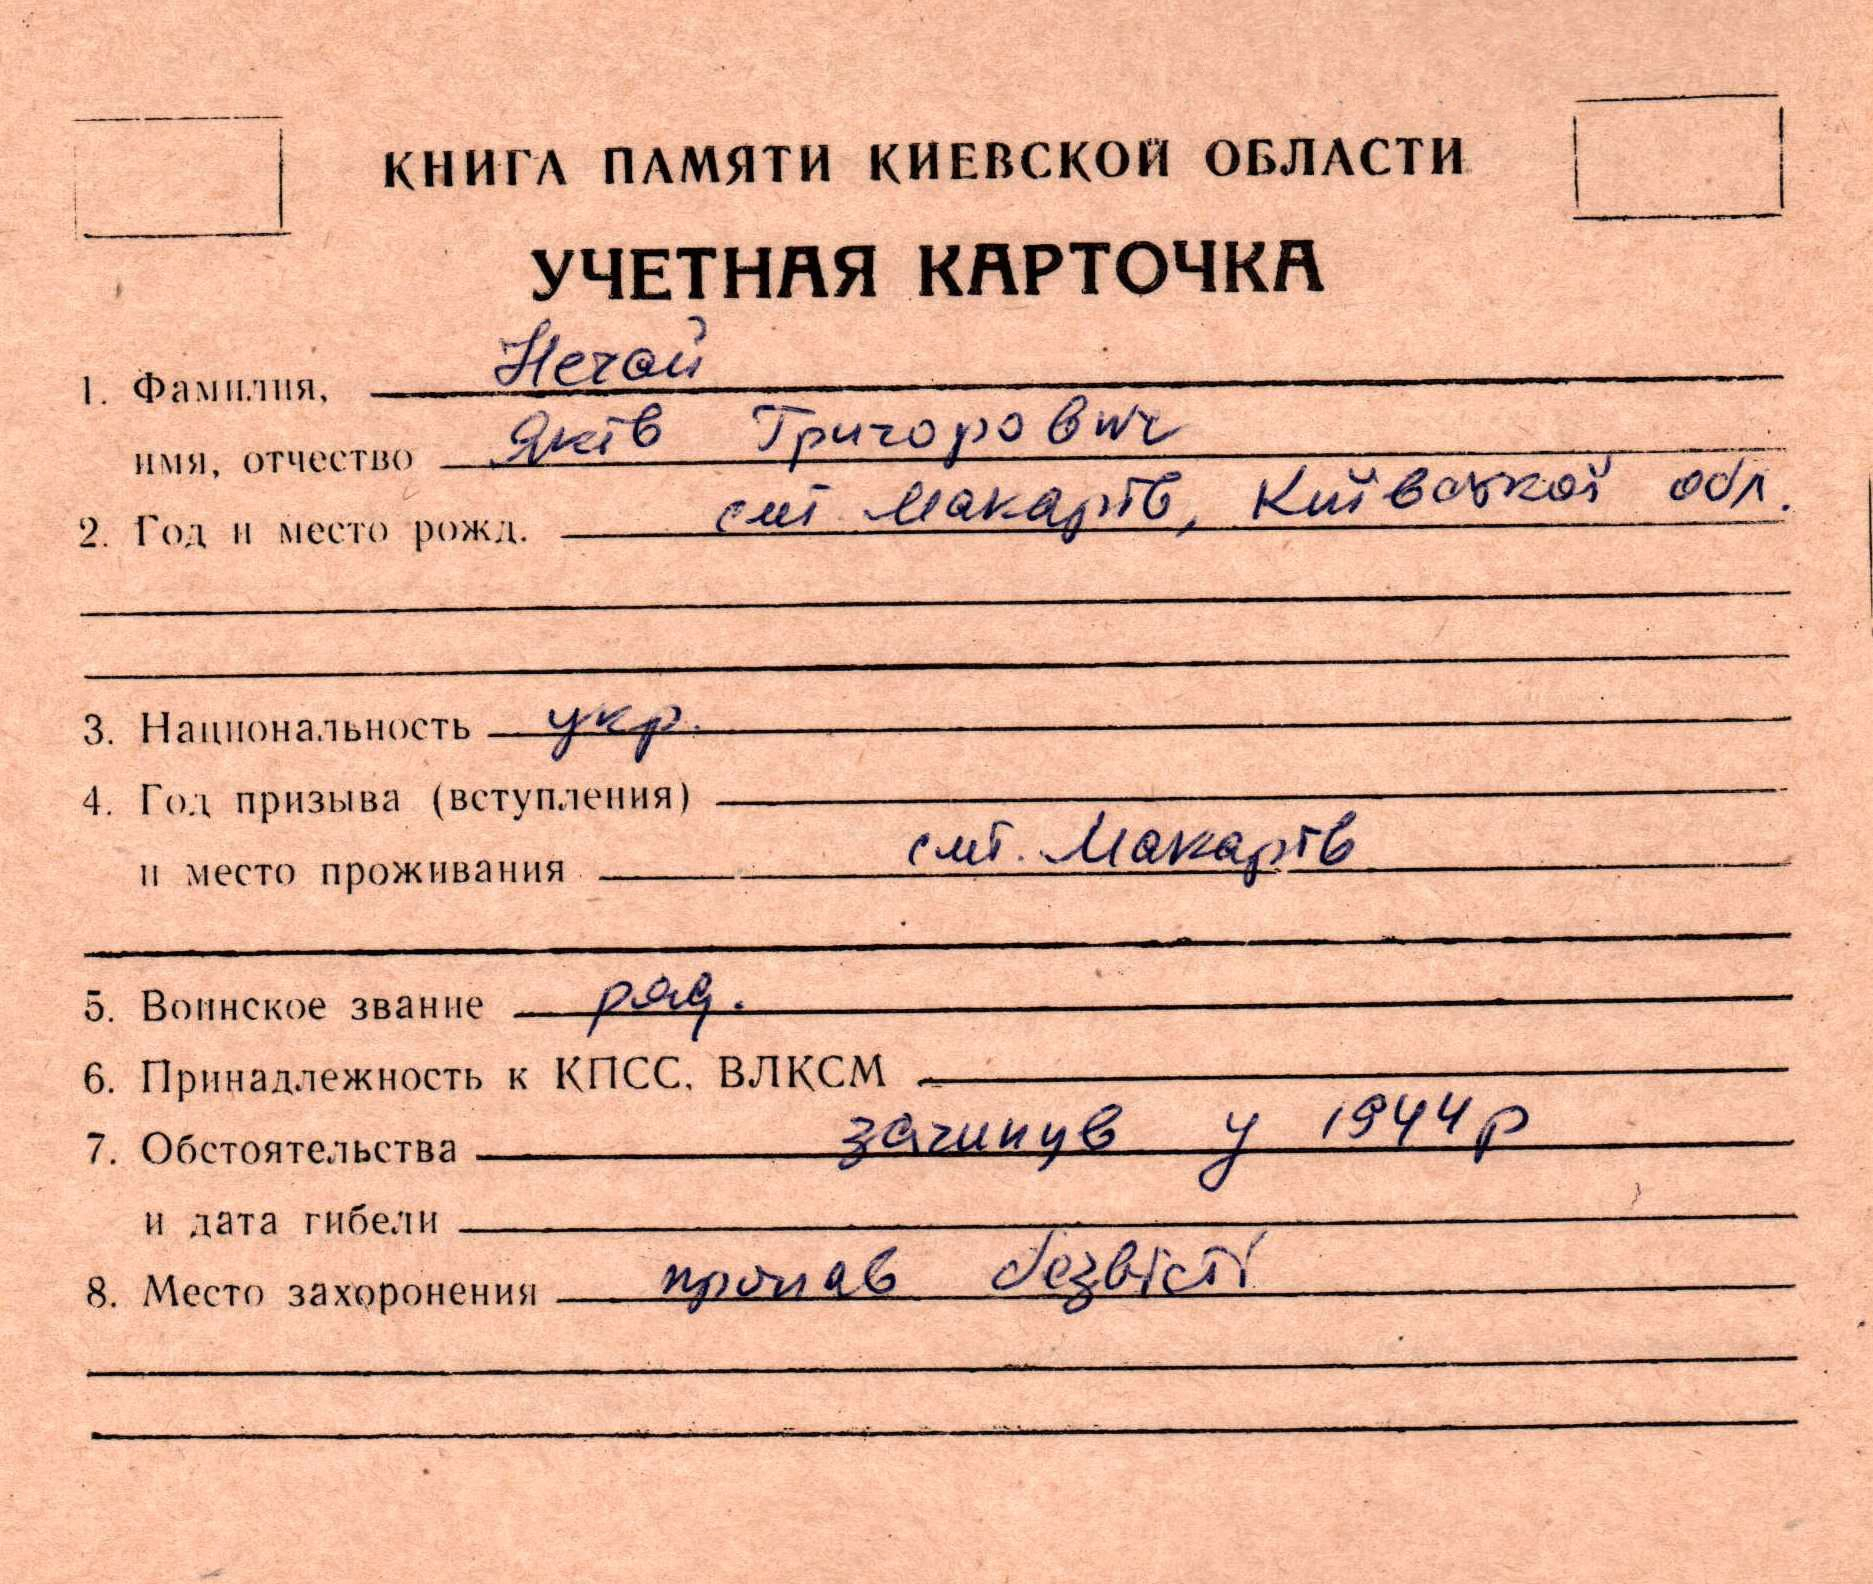 КНИГА ПАМЯТИ КИЕВСКОЙ ОБЛАСТИ
УЧЕТНАЯ КАРТОЧКА
1. Фамилия, Нечай
имя, отчество Яків Григорович
2. Год и место рожд. смт. Макарів, Київської обл.
3. Национальность укр.
4. Год призыва (вступления)
и место проживания смт. Макарів
5. Воинское звание ряд.
6. Принадлежность к КПСС, ВЛКСМ
7. Обстоятельства загинув у 1944 р
и дата гибели
8. Место захоронения пропав безвісті